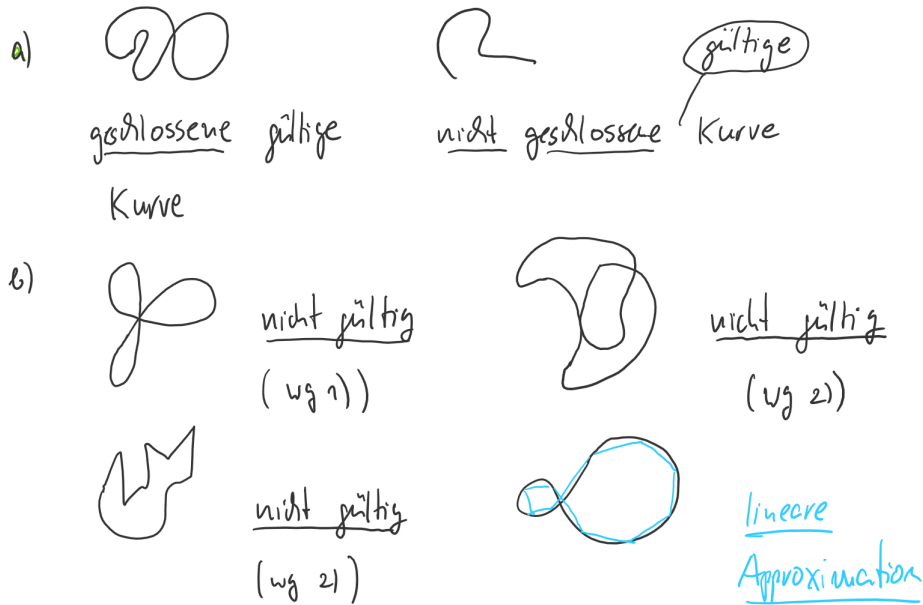 a)
gültige
geschlossene gültige
nicht geschlossene Kurve
Kurve
b)
nicht gültig
(wg 1))
nicht gültig
(wg 2))
nicht gültig
(wg 2))
lineare
Approximation